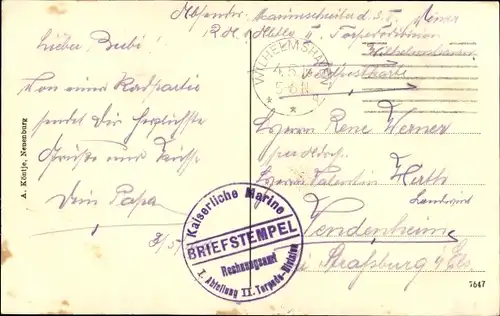 Absender: Marinescheiber d. S. I. Werner
II. Torpedodivision
Wilhelmshaven
Lieber Bubi!
Feldpostkarte
WILHELMSHAVEN
5-6 N
* *
Von einer Radpartie
sendet Dir herzlichste
Grüsse und Küsse
Dein Papa
3/5
Herrn Rene Werner
Herrn Valentin Herth
Landwirt
Vendenheim
bei Strassburg i/Els
Kaiserliche Marine
BRIEFSTEMPEL
Rechnungsamt
I. Abteilung II. Torpedo-Division
A. Köntje, Neuenburg
7647